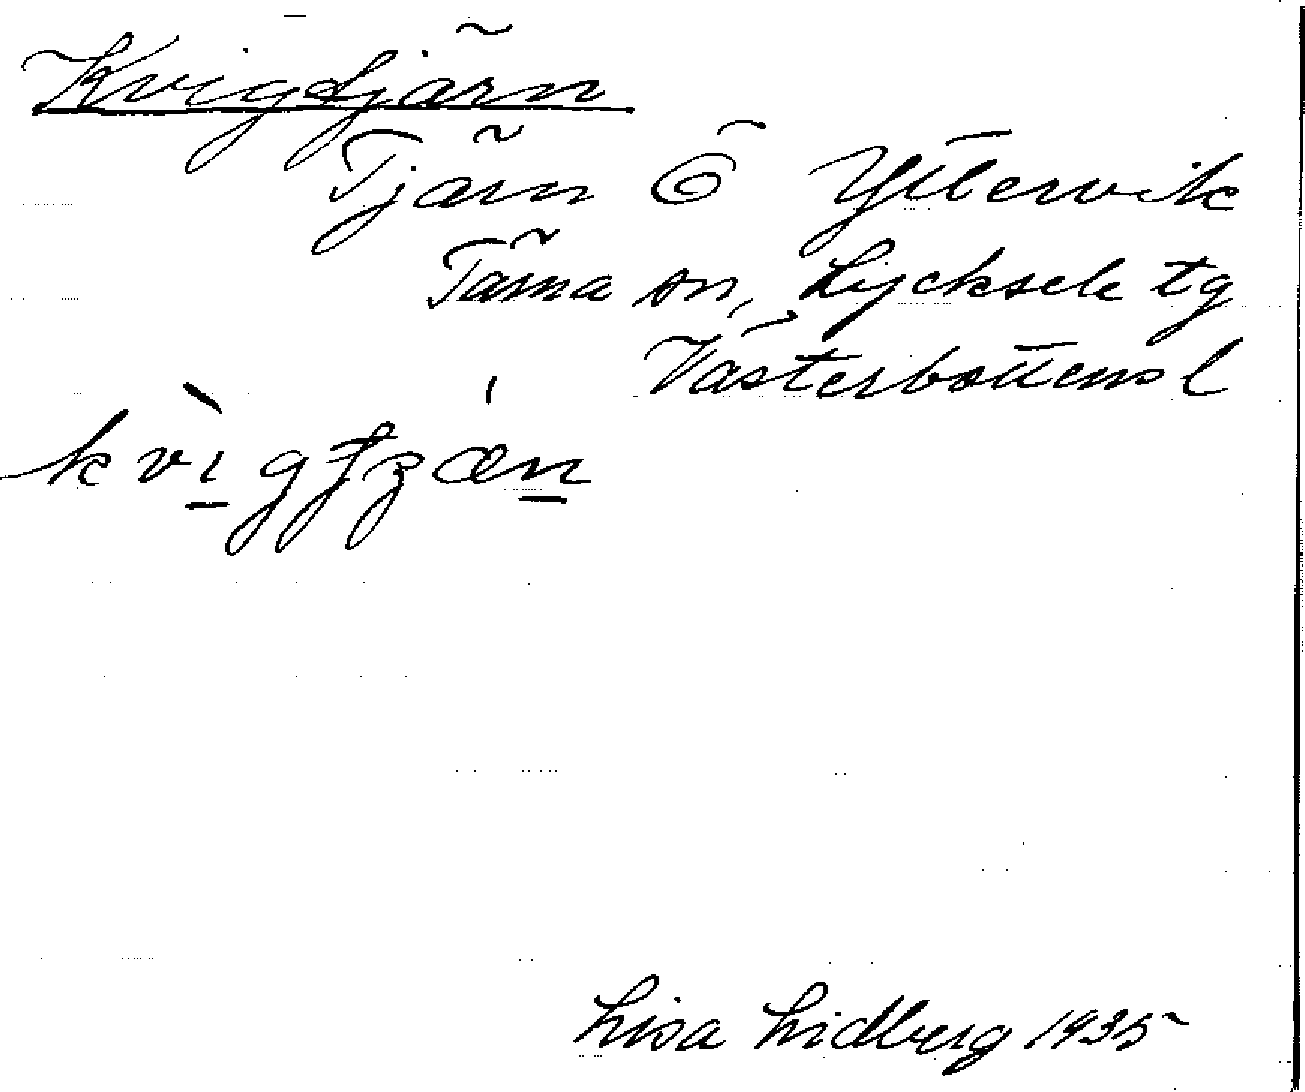 Kvigtjärn
Tjärn Ö Yttervik
Tärna sn, Lycksele tg
Västerbottens l
Lisa Lidberg 1935